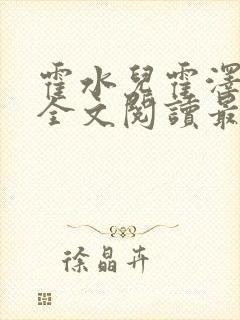 霍水兒霍澤
全文閱讀最
徐晶卉